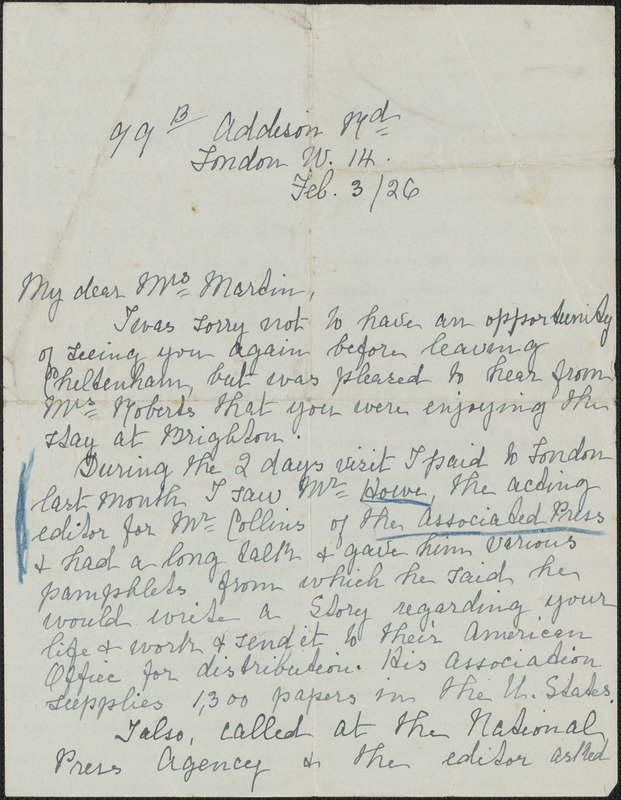 99B Addison Rd
London W. 14.
Feb. 3/26
My dear Mrs Martin,
I was sorry not to have an opportunity
of seeing you again before leaving
Cheltenham, but was pleased to hear from
Mrs Roberts that you were enjoying the
stay at Brighton.
During the 2 days visit I paid to London
last month I saw Mr Howe, the acting
editor for Mr Collins of the Associated Press
& had a long talk & gave him various
pamphlets from which he said he
would write a Story regarding your
life & work & send it to their American
Office for distribution. His association
supplies 1,300 papers in the U. States.
I also, called at the National
Press Agency & the editor asked